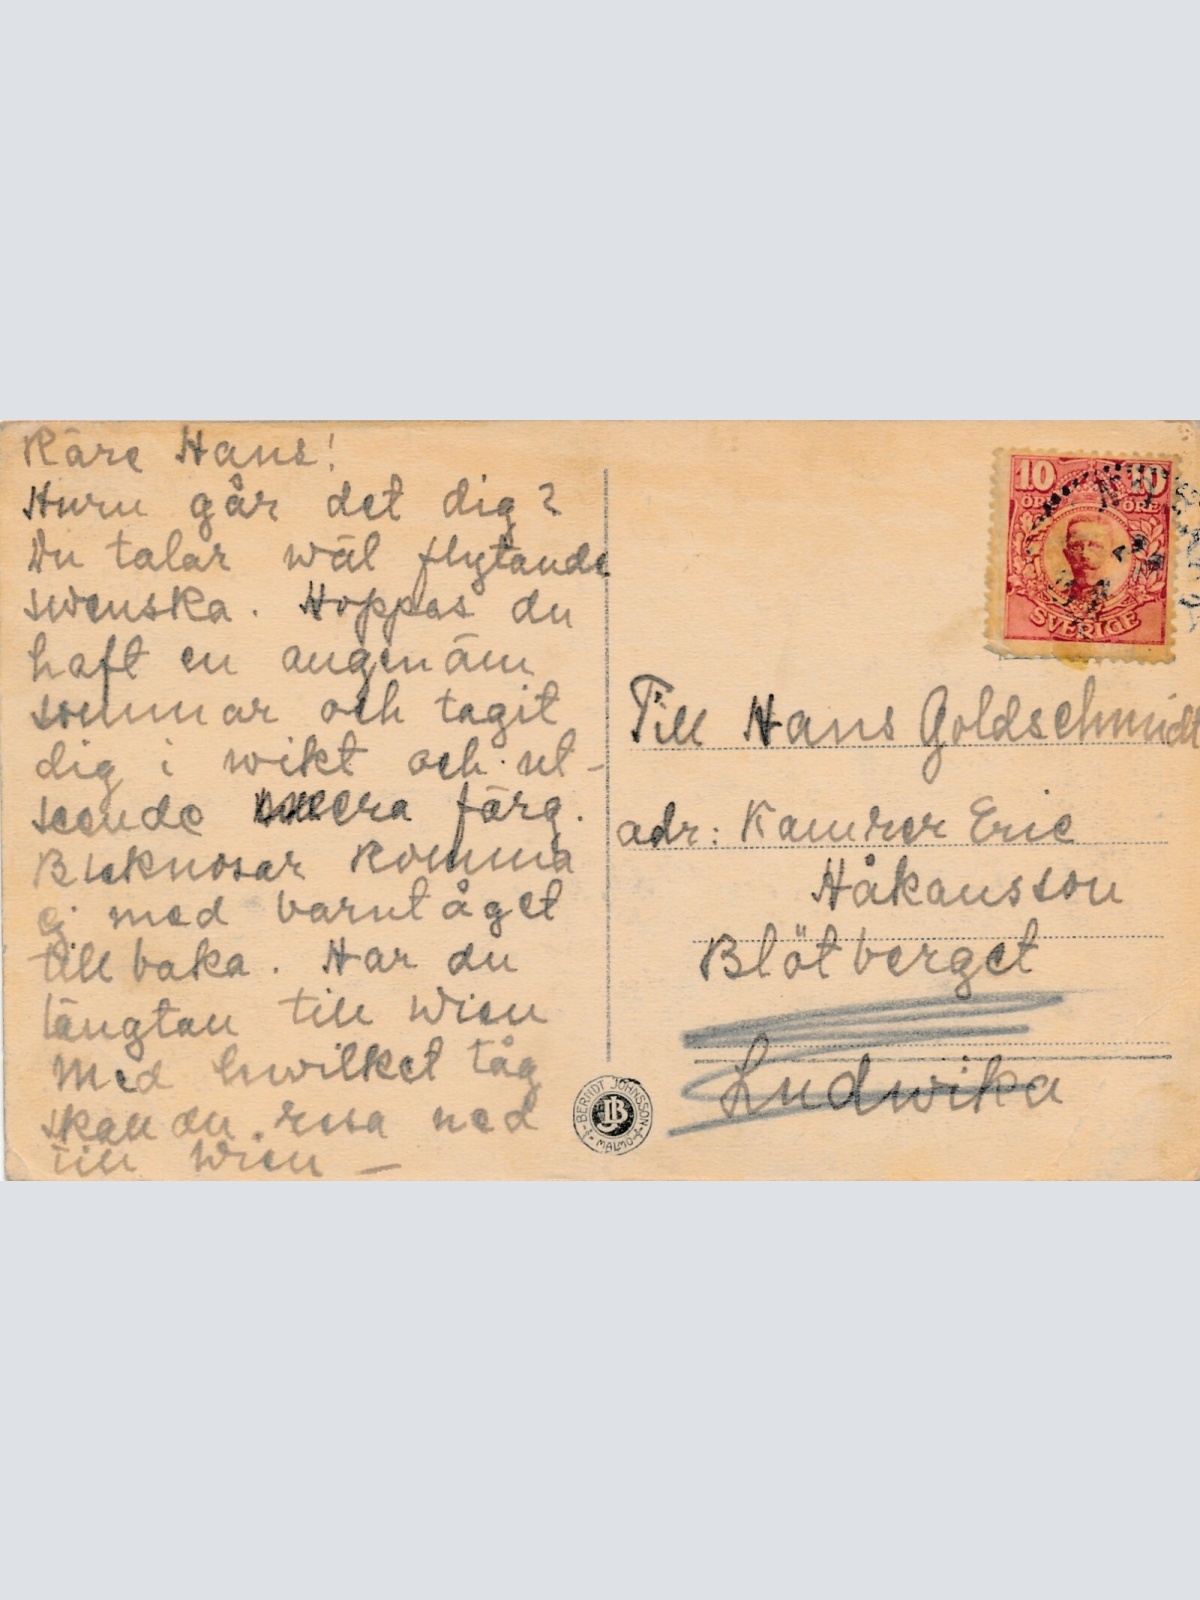 Käre Hans!
Huru går det dig?
Du talar wäl flytande
swenska. Hoppas du
haft en angenäm
sommar och tagit
dig i wikt och ut-
seende färg.
Bleknosar komma
ej med barntåget
tillbaka. Har du
längtan till Wien
Med hwilket tåg
skall du resa ned
till Wien –
10 10
ÖRE ÖRE
SVERIGE
Till Hans Goldschmidt
adr: Kamrer Eric
Håkansson
Blötberget
Ludwika
BERNDT JOHNSSON
BJ
MALMÖ